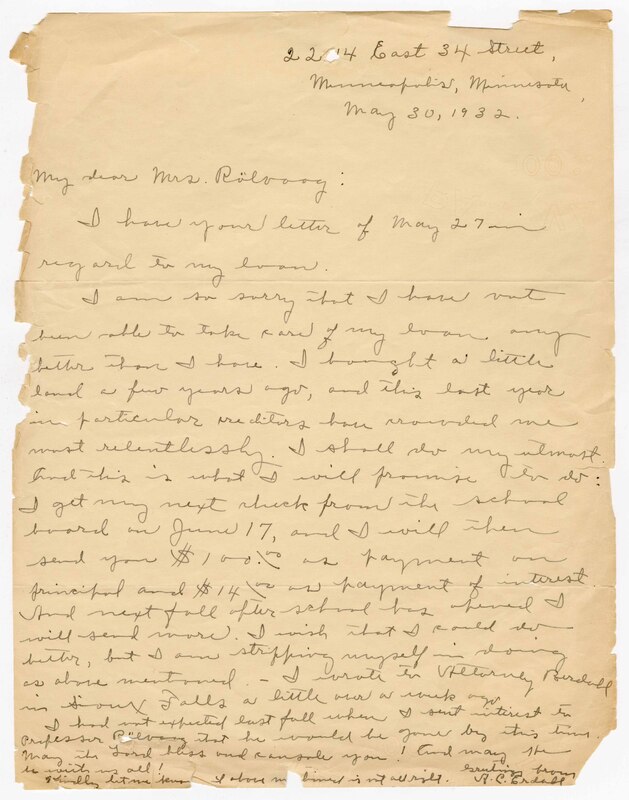 2214 East 34 Street,
Minneapolis, Minnesota,
May 30, 1932.
My dear Mrs. Rölvaag:
I have your letter of May 27 in
regard to my loan.
I am so sorry that I have not
been able to take care of my loan any
better than I have. I bought a little
land a few years ago, and this last year
in particular creditors have crowded me
most relentlessly. I shall do my utmost.
And this is what I will promise to do:
I get my next check from the school
board on June 17, and I will then
send you $100.00 as payment on
principal and $14.00 as payment of interest.
And next fall after school has opened I
will send more. I wish that I could do
better, but I am stripping myself in doing
as above mentioned. - I wrote to Attorney Berdahl
in Sioux Falls a little over a week ago.
I had not expected last fall when I sent interest to
Professor Rölvaag that he would be gone by this time.
May the Lord bless and console you! And may He
be with us all! Greetings from
Kindly let me know if above is not all right. A.C. Erdall